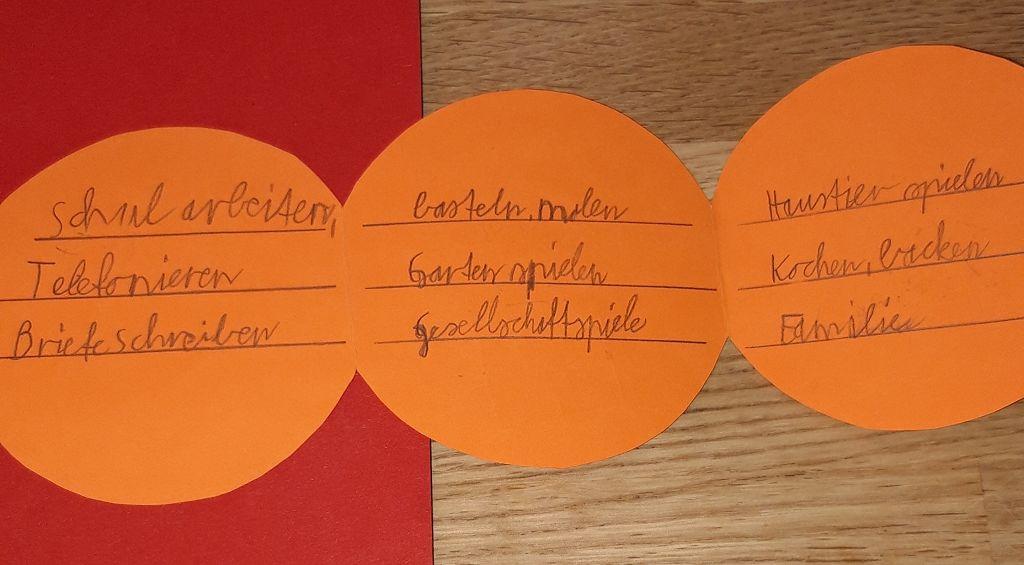 Schul arbeiten,
Telefonieren
Briefe schreiben
basteln, malen
Garten spielen
Gesellschaftspiele
Haustier spielen
Kochen, backen
Familie